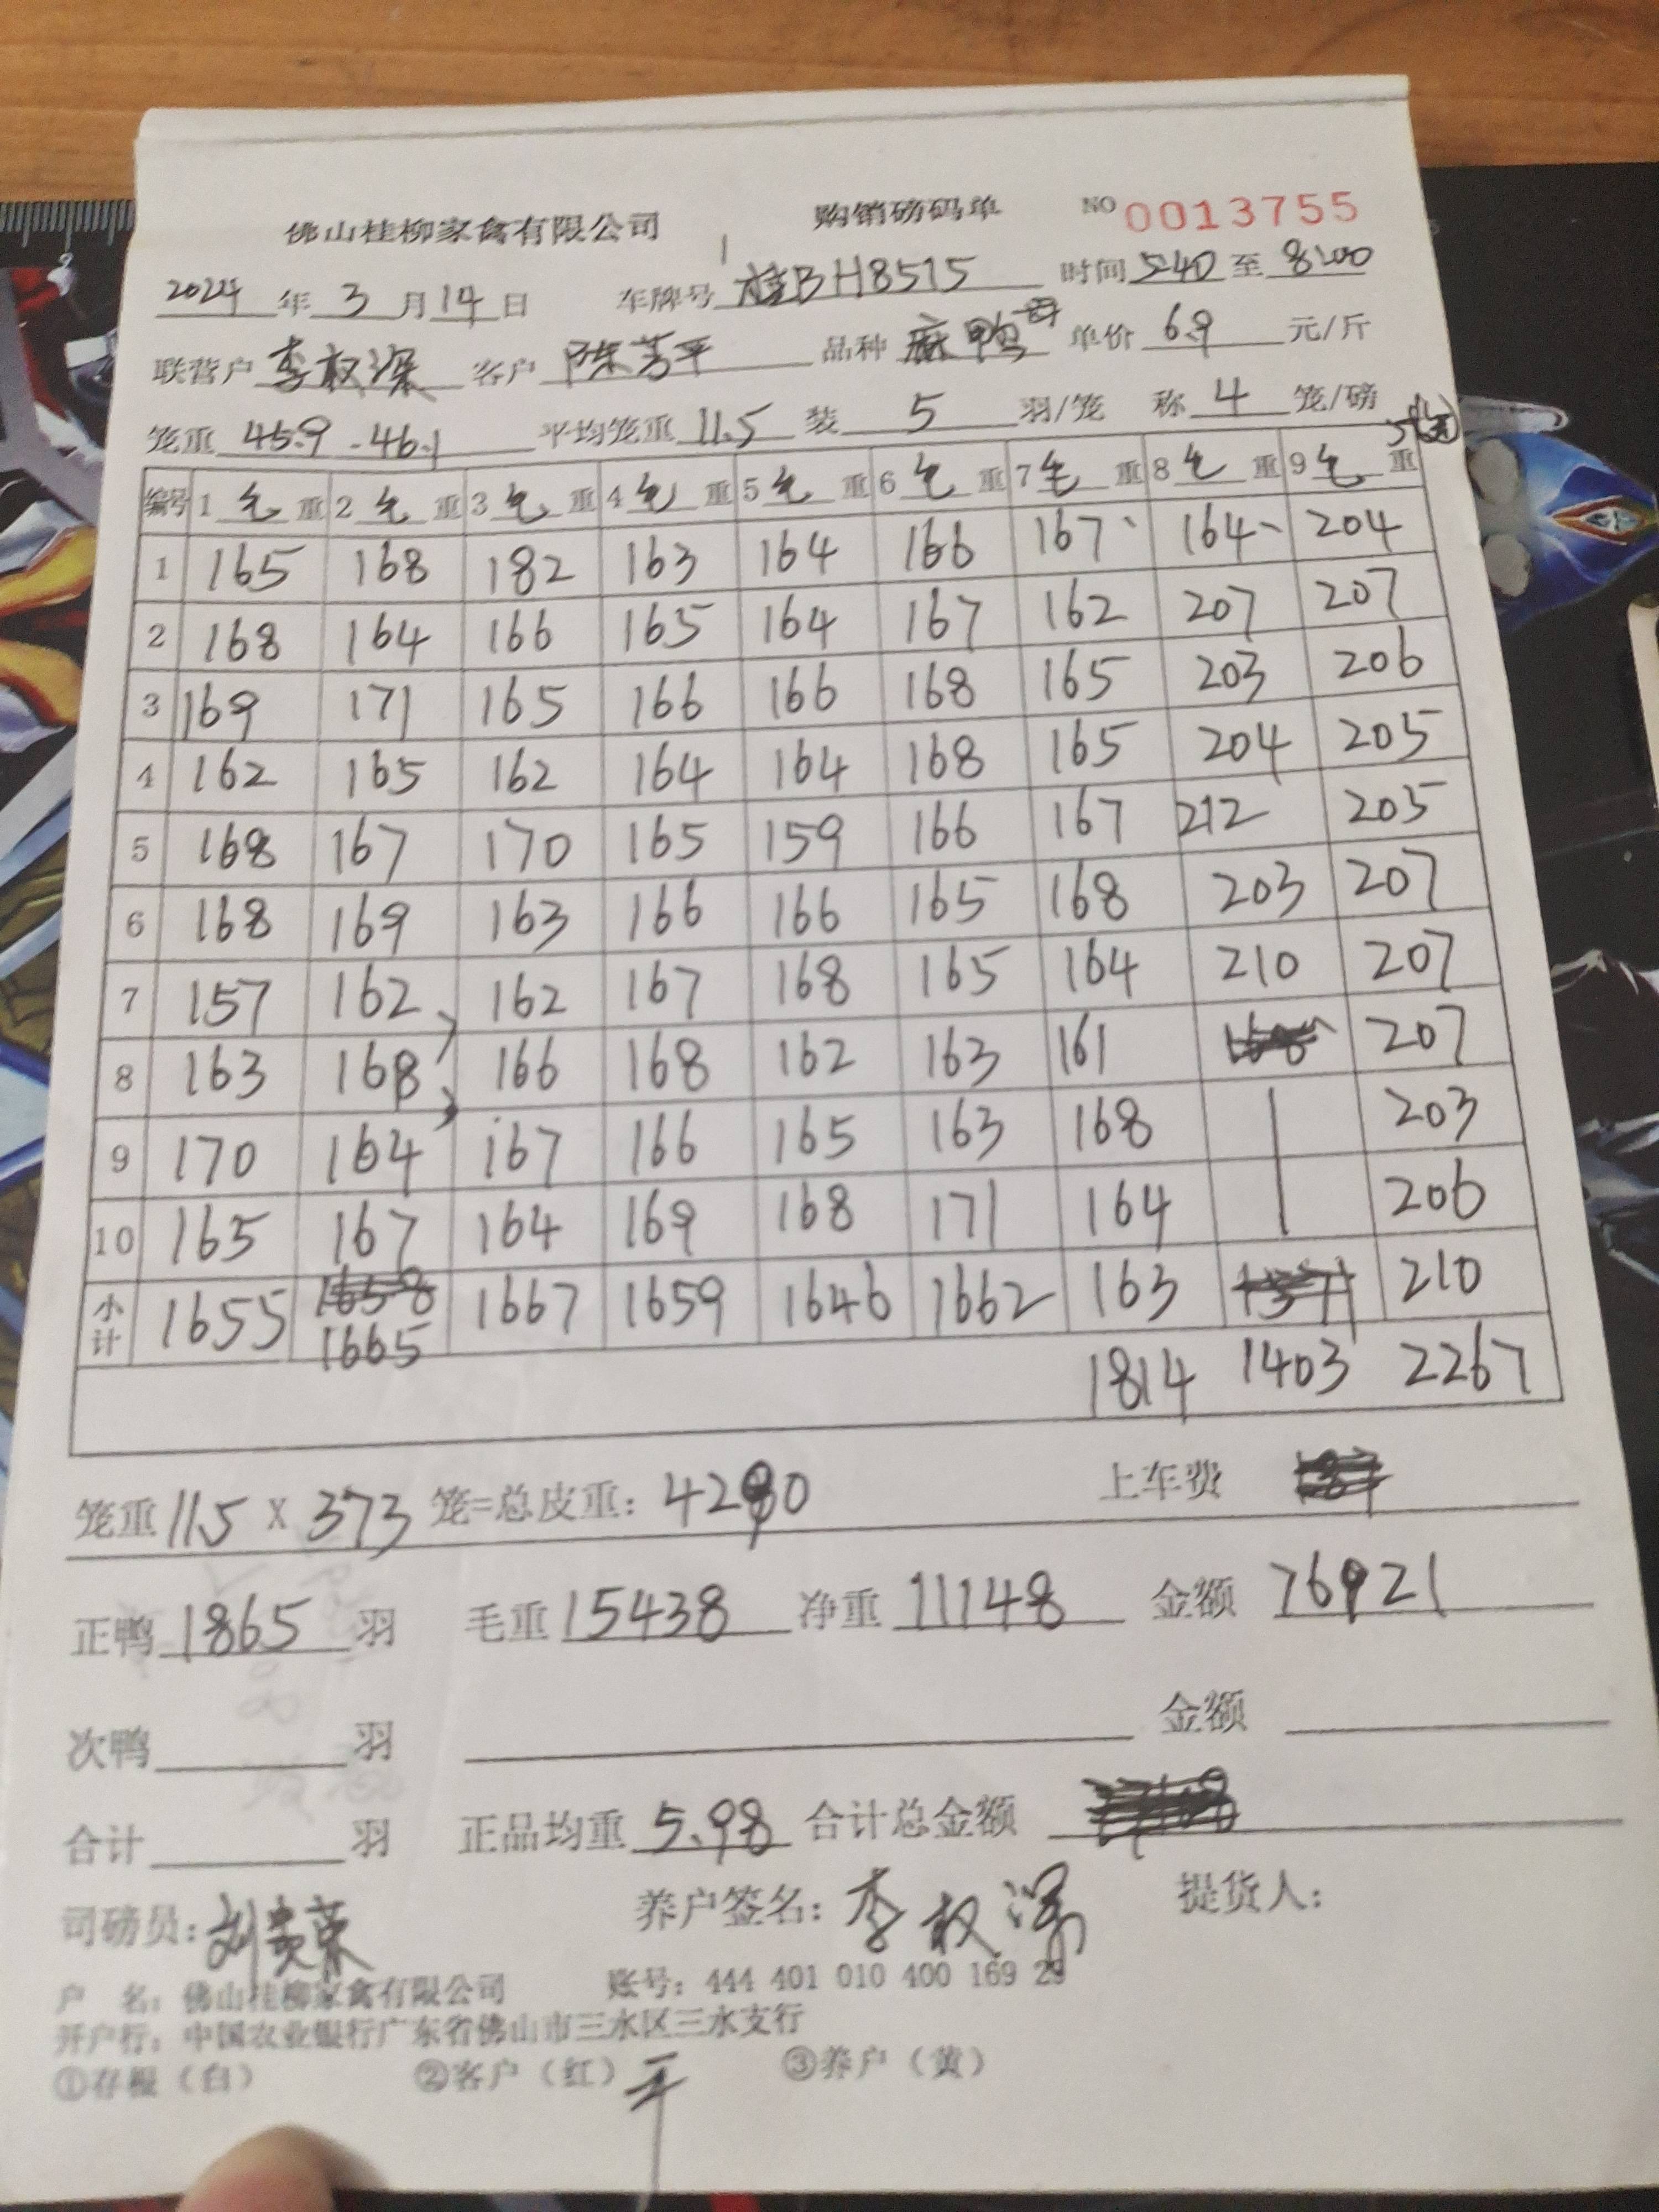 佛山桂柳家禽有限公司 购销磅码单 NO 0013755
2024 年 3 月 14 日 车牌号 桂BH8515 时间 5:40 至 8:00
联营户 李权深 客户 陈芳平 品种 麻鸭 单价 6.9 元/斤
笼重 45.9 - 46.1 平均笼重 11.5 装 5 羽/笼 称 4 笼/磅
编号 1 毛 重 2 毛 重 3 毛 重 4 毛 重 5 毛 重 6 毛 重 7 毛 重 8 毛 重 9 毛 重
1 165 168 182 163 164 166 167 164 204
2 168 164 166 165 164 167 162 207 207
3 169 171 165 166 166 168 165 203 206
4 162 165 162 164 164 168 165 204 205
5 168 167 170 165 159 166 167 212 205
6 168 169 163 166 166 165 168 203 207
7 157 162 162 167 168 165 164 210 207
8 163 168 166 168 162 163 161 207
9 170 164 167 166 165 163 168 203
10 165 167 164 169 168 171 164 206
小计 1655 1658 1667 1659 1646 1662 163 210
1665 1814 1403 2267
笼重 11.5 X 373 笼=总皮重: 4290 上车费
正鸭 1865 羽 毛重 15438 净重 11148 金额 76921
次鸭 羽 金额
合计 羽 正品均重 5.98 合计总金额
司磅员: 养户签名: 李权深 提货人:
户 名: 佛山桂柳家禽有限公司 账号: 444 401 010 400 169 29
开户行: 中国农业银行广东省佛山市三水区三水支行
①存根（白） ②客户（红） 平 ③养户（黄）